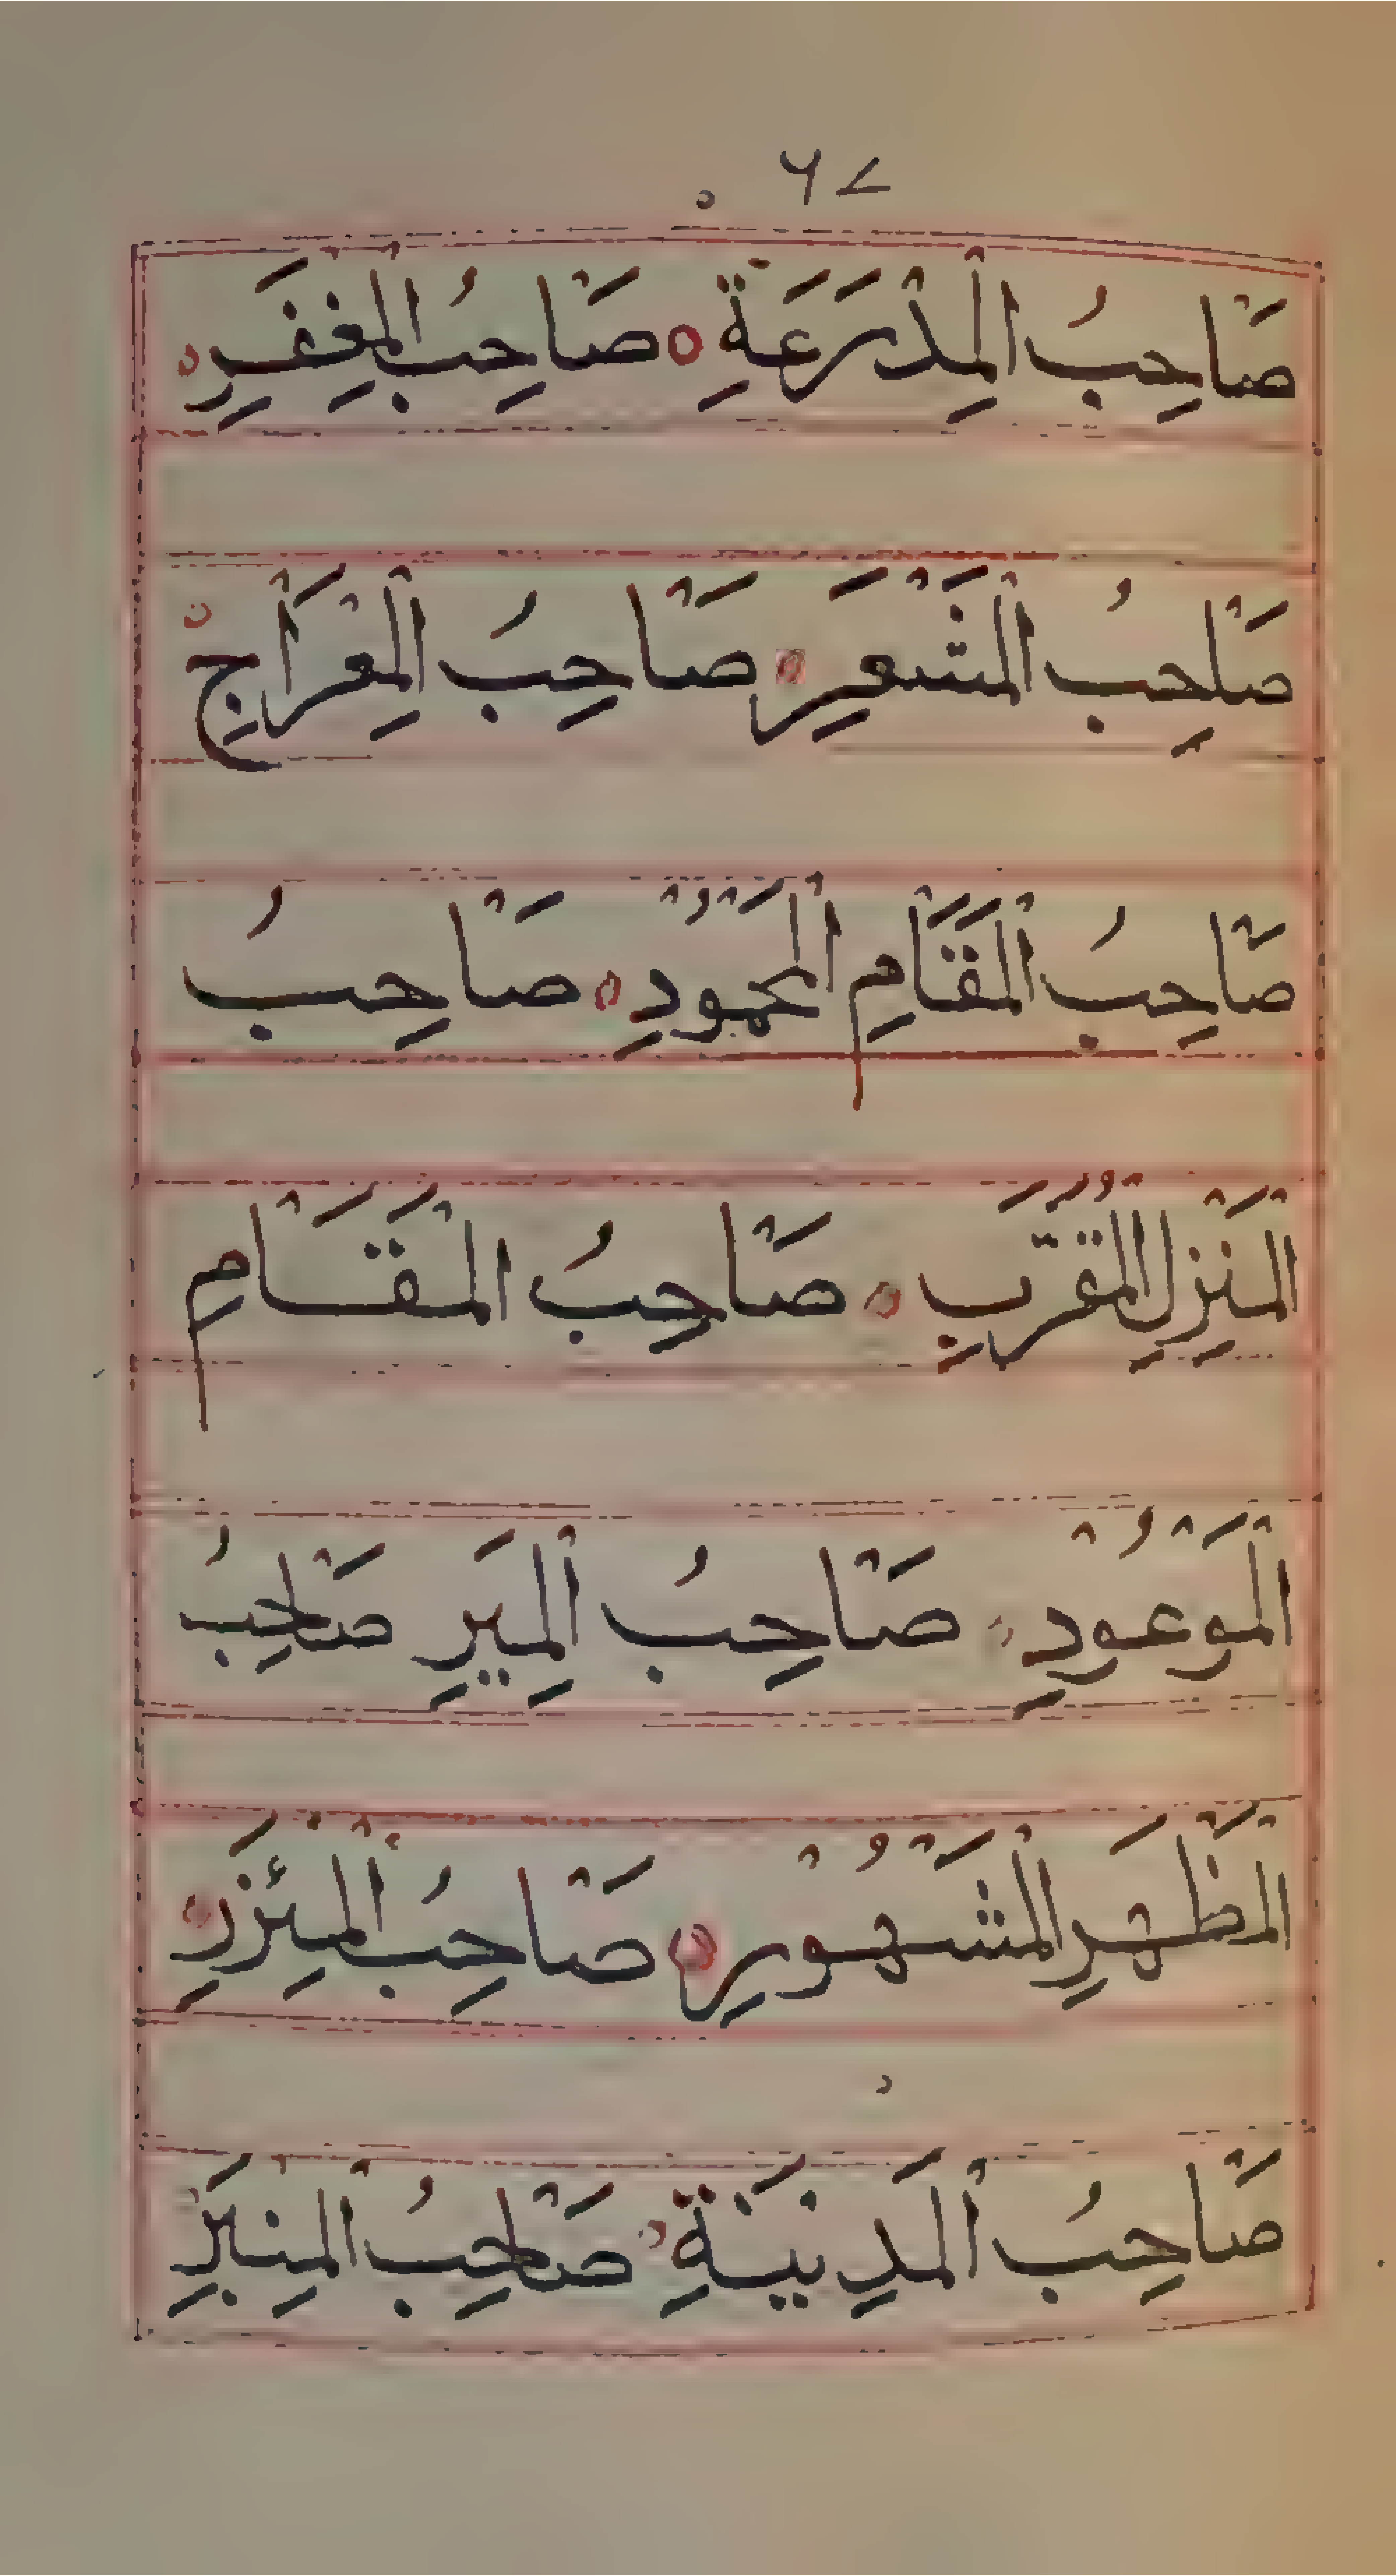 ٦٧
صَاحِبُ الْمِدْرَعَةِ ۝ صَاحِبُ الْمِغْفَرِ
صَاحِبُ الْمَشْعَرِ ۝ صَاحِبُ الْمِعْرَاجِ
صَاحِبُ الْمَقَامِ الْمَحْمُوْدِ ۝ صَاحِبُ
الْمَنْزِلِ الْمُقَرَّبِ ۝ صَاحِبُ الْمَقَامِ
الْمَوْعُوْدِ ۝ صَاحِبُ صَاحِبُ
الْمَظْهَرِ الْمَشْهُوْرِ ۝ صَاحِبُ الْمِئْزَرِ
صَاحِبُ الْمَدِيْنَةِ ۝ صَاحِبُ الْمِنْبَرِ